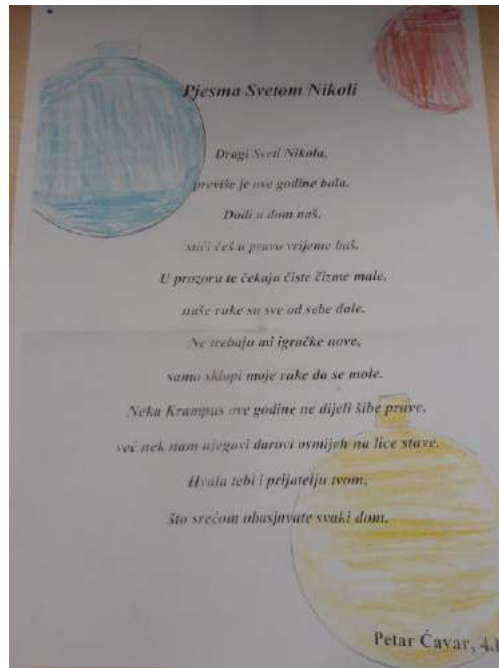 Pjesma Svetom Nikoli
Dragi Sveti Nikola,
previše je ove godine bola.
Dođi u dom naš,
stići ćeš u pravo vrijeme baš.
U prozoru te čekaju čiste čizme male,
naše ruke su sve od sebe dale.
Ne trebaju mi igračke nove,
samo sklopi moje ruke da se mole.
Neka Krampus ove godine ne dijeli šibe prave,
već nek nam njegovi darovi osmijeh na lice stave.
Hvala tebi i prijatelju tvom,
što srećom obasjavate svaki dom.
Petar Ćavar, 4.